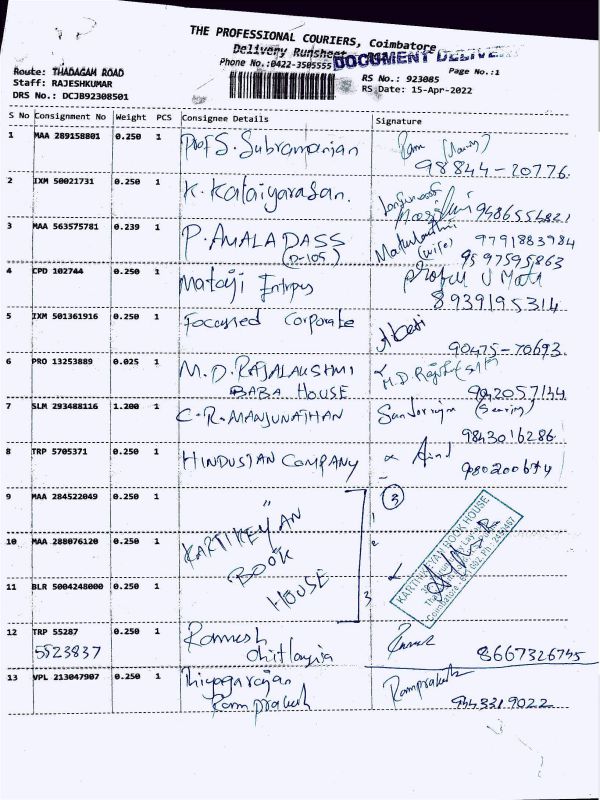 THE PROFESSIONAL COURIERS, Coimbatore
Delivery Runsheet
DOCUMENT DELIVER
Phone No.:0422-3505555
Page No.:1
Route: THADAGAM ROAD
Staff: RAJESHKUMAR
DRS No.: DCJB92308501
RS No.: 923085
RS Date: 15-Apr-2022
S No Consignment No Weight PCS Consignee Details Signature
1 MAA 289158801 0.250 1 Prof S. Subramanian Ram
98844-20776
2 IXM 50021731 0.250 1 K. Kalaiyarasan.
9486554821
3 MAA 563575781 0.239 1 P. AMALA DASS
(D-105)
(wife) 9791883984
9597595863
4 CPD 102744 0.250 1 Mataji
8939195314
5 IXM 501361916 0.250 1 Focussed Corporate
90475-70693.
6 PRO 13253889 0.025 1 M.D. RAJALAKSHMI
BABA HOUSE
M.D. 
7 SLM 293488116 1.200 1 C.R. MANJUNATHAN
9843016286
8 TRP 5705371 0.250 1 HINDUSTAN COMPANY
9 MAA 284522049 0.250 1
10 MAA 288076120 0.250 1
11 BLR 5004248000 0.250 1
KARTIKEYAN
BOOK
HOUSE
3
3
KARTHIKEYAN BOOK HOUSE
Coimbatore
12 TRP 55287 0.250 1 Ramesh
5523837
8667326745
13 VPL 213047907 0.250 1 Thiyagarajan
Ramprakash
Ramprakash
9443319022